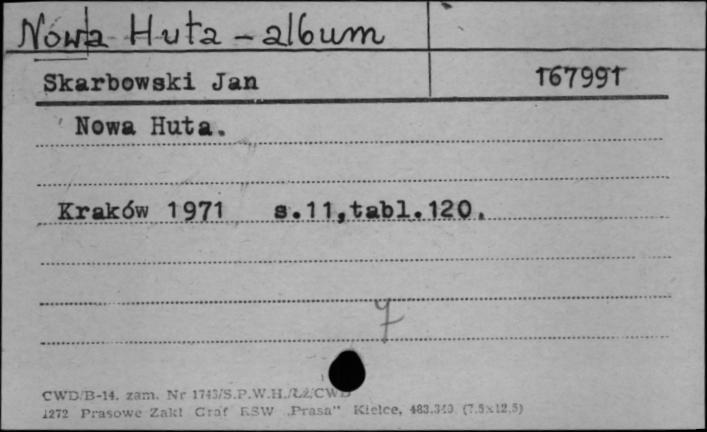 Nowa Huta - album
Skarbowski Jan 167991
Nowa Huta.
Kraków 1971 s.11,tabl.120.
7
CWD/B-14. zam. Nr 1743/S.P.W.H./ŁŻ/CWD
1272 Prasowe Zakł Graf RSW „Prasa" Kielce, 483.340 (7.5x12.5)